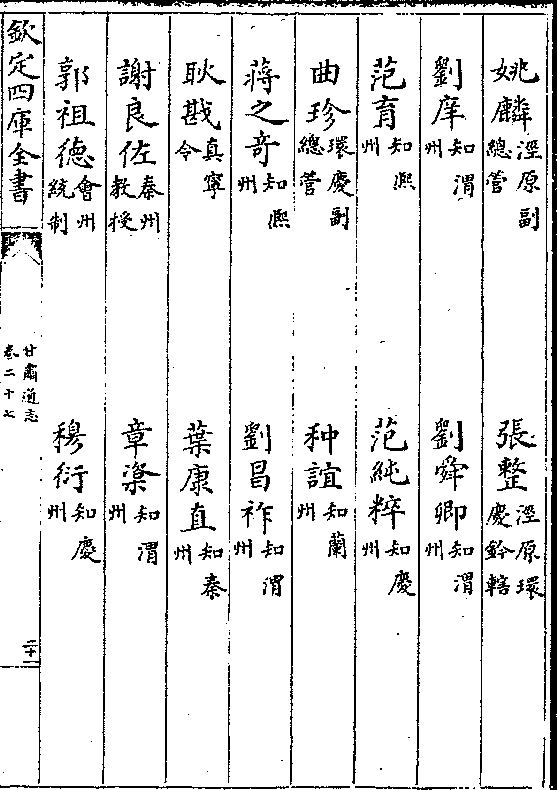 姚麟涇原副總管 張整涇原環慶鈐轄
劉庠知渭州 劉舜卿知渭州
范育知熙州 范純粹知慶州
曲珍環慶副總管 种誼知蘭州
蔣之奇知熙州 劉昌祚知渭州
耿戡真寧令 葉康直知秦州
謝良佐秦州教授 章楶知渭州
郭祖德會州統制 穆衍知慶州
欽定四庫全書
甘肅通志
卷二十七
二十一